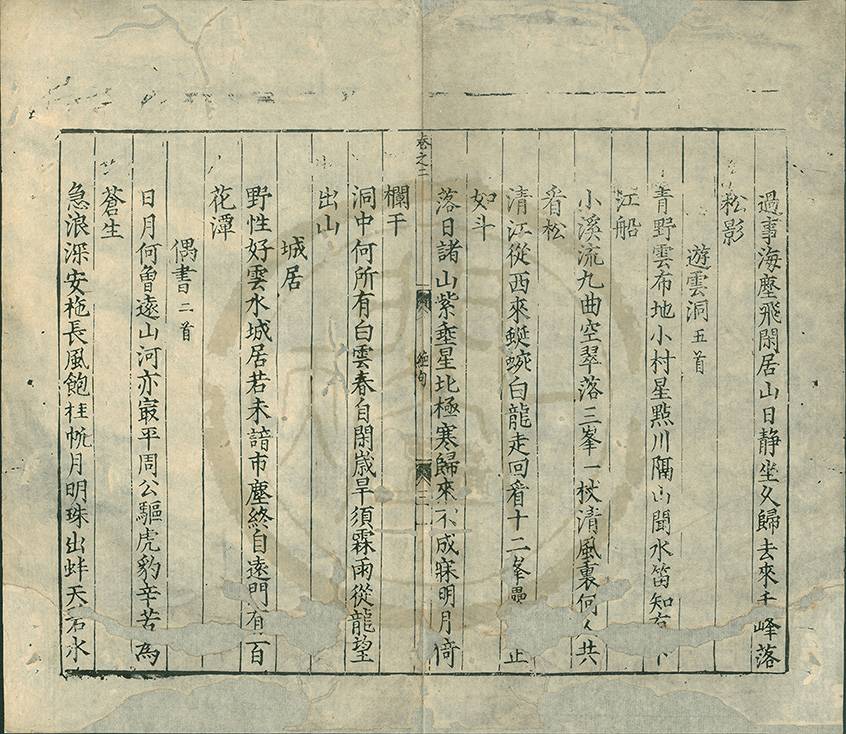 過事海塵飛閑居山日静坐久歸去來千峰落
松影
遊雲洞五首
青野雲布地小村星點川隔山聞水笛知有
江船
小溪流九曲空翠落三峯一杖清風裏何人共
看松
清江從西來蜒蜿白龍走回看十二峯 止
如斗
落日諸山紫垂星北極寒歸來不成寐明月倚
卷之二
絕句
三
欄干
洞中何所有白雲春自閑歲旱須霖雨從龍望
出山
城居
野性好雲水城居若未諳市塵終自遠門有百
花潭
偶書二首
日月何曾遠山河亦㝡平周公驅虎豹辛苦為
蒼生
急浪深安柂長風飽挂帆月明珠出蚌天 水